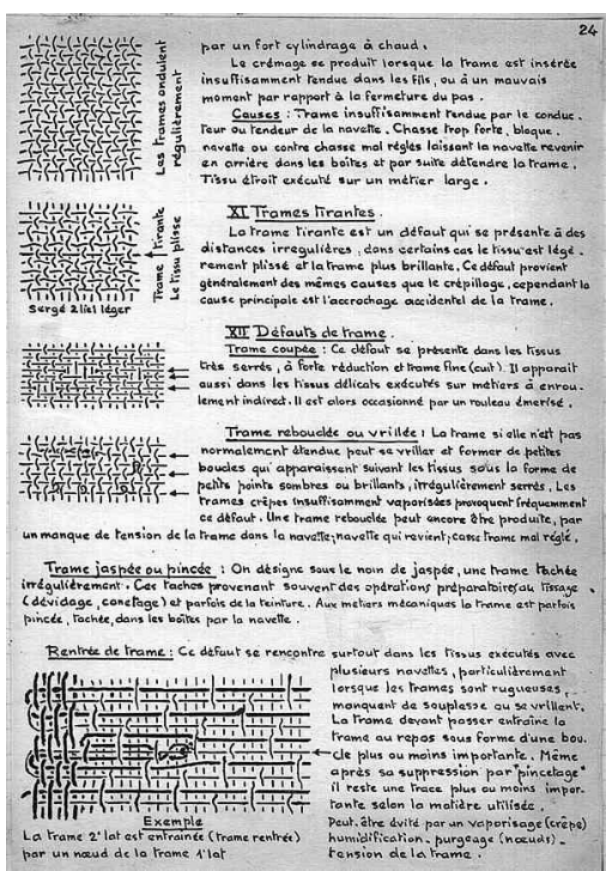 24
par un fort cylindrage à chaud.
Le crémage se produit lorsque la trame est insérée
insuffisamment tendue dans les fils, ou à un mauvais
moment par rapport à la fermeture du pas.
Causes : Trame insuffisamment tendue par le conduc.
teur ou tendeur de la navette. Chasse trop forte, bloque.
navette ou contre chasse mal réglés laissant la navette revenir
en arrière dans les boîtes et par suite détendre la trame.
Tissu étroit exécuté sur un métier large.
Les trames ondulent
régulièrement
XI Trames tirantes.
La trame tirante est un défaut qui se présente à des
distances irregulières, dans certains cas le tissu est légè.
rement plissé et la trame plus brillante. Ce défaut provient
généralement des mêmes causes que le crépillage, cependant la
cause principale est l'accrochage accidentel de la trame.
Trame tirante
Le tissu plisse
Sergé 2 liel léger
XII Défauts de trame.
Trame coupée : Ce défaut se présente dans les tissus
très serrés, à forte réduction et trame fine (cuit). Il apparait
aussi dans les tissus délicats exécutés sur métiers à enrou.
lement indirect. Il est alors occasionné par un rouleau émerisé.
Trame rebouclée ou vrillée : La trame si elle n'est pas
normalement étendue peut se vriller et former de petites
boucles qui apparaissent suivant les tissus sous la forme de
petits points sombres ou brillants, irrégulièrement serrés. Les
trames crêpes insuffisamment vaporisées provoquent fréquemment
ce défaut. Une trame rebouclée peut encore être produite, par
un manque de tension de la trame dans la navette; navette qui revient; casse trame mal réglé.
Trame jaspée ou pincée : On désigne sous le nom de jaspée, une trame tachée
irrégulièrement. Ces taches provenant souvent des opérations préparatoires au tissage
(dévidage, canetage) et parfois de la teinture. Aux metiers mécaniques la trame est parfois
pincée, tachée, dans les boîtes par la navette.
Rentrée de trame : Ce défaut se rencontre surtout dans les tissus exécutés avec
plusieurs navettes, particulièrement
lorsque les trames sont rugueuses,
manquent de souplesse ou se vrillent.
La trame devant passer entraîne la
trame au repos sous forme d'une bou.
cle plus ou moins importante. Même
après sa suppression par "pincetage"
il reste une trace plus ou moins impor.
tante selon la matière utilisée.
Peut-être évité par un vaporisage (crêpe)
humidification. purgeage (nœuds).
tension de la trame.
Exemple
La trame 2° lat est entrainée (trame rentrée)
par un nœud de la trame 1° lat